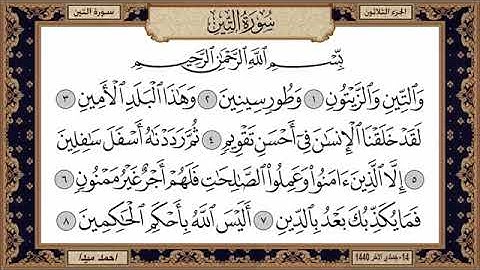 الجزء الثلاثون
سُورَةُ التِّينِ
سورة التين
بِسْمِ اللَّهِ الرَّحْمَٰنِ الرَّحِيمِ
وَالتِّينِ وَالزَّيْتُونِ ١ وَطُورِ سِينِينَ ٢ وَهَٰذَا الْبَلَدِ الْأَمِينِ ٣
لَقَدْ خَلَقْنَا الْإِنسَانَ فِي أَحْسَنِ تَقْوِيمٍ ٤ ثُمَّ رَدَدْنَٰهُ أَسْفَلَ سَٰفِلِينَ
٥ إِلَّا الَّذِينَ ءَامَنُوا وَعَمِلُوا الصَّٰلِحَٰتِ فَلَهُمْ أَجْرٌ غَيْرُ مَمْنُونٍ ٦
فَمَا يُكَذِّبُكَ بَعْدُ بِالدِّينِ ٧ أَلَيْسَ اللَّهُ بِأَحْكَمِ الْحَٰكِمِينَ ٨
14-جمادى الآخر 1440
أحمد ميرا